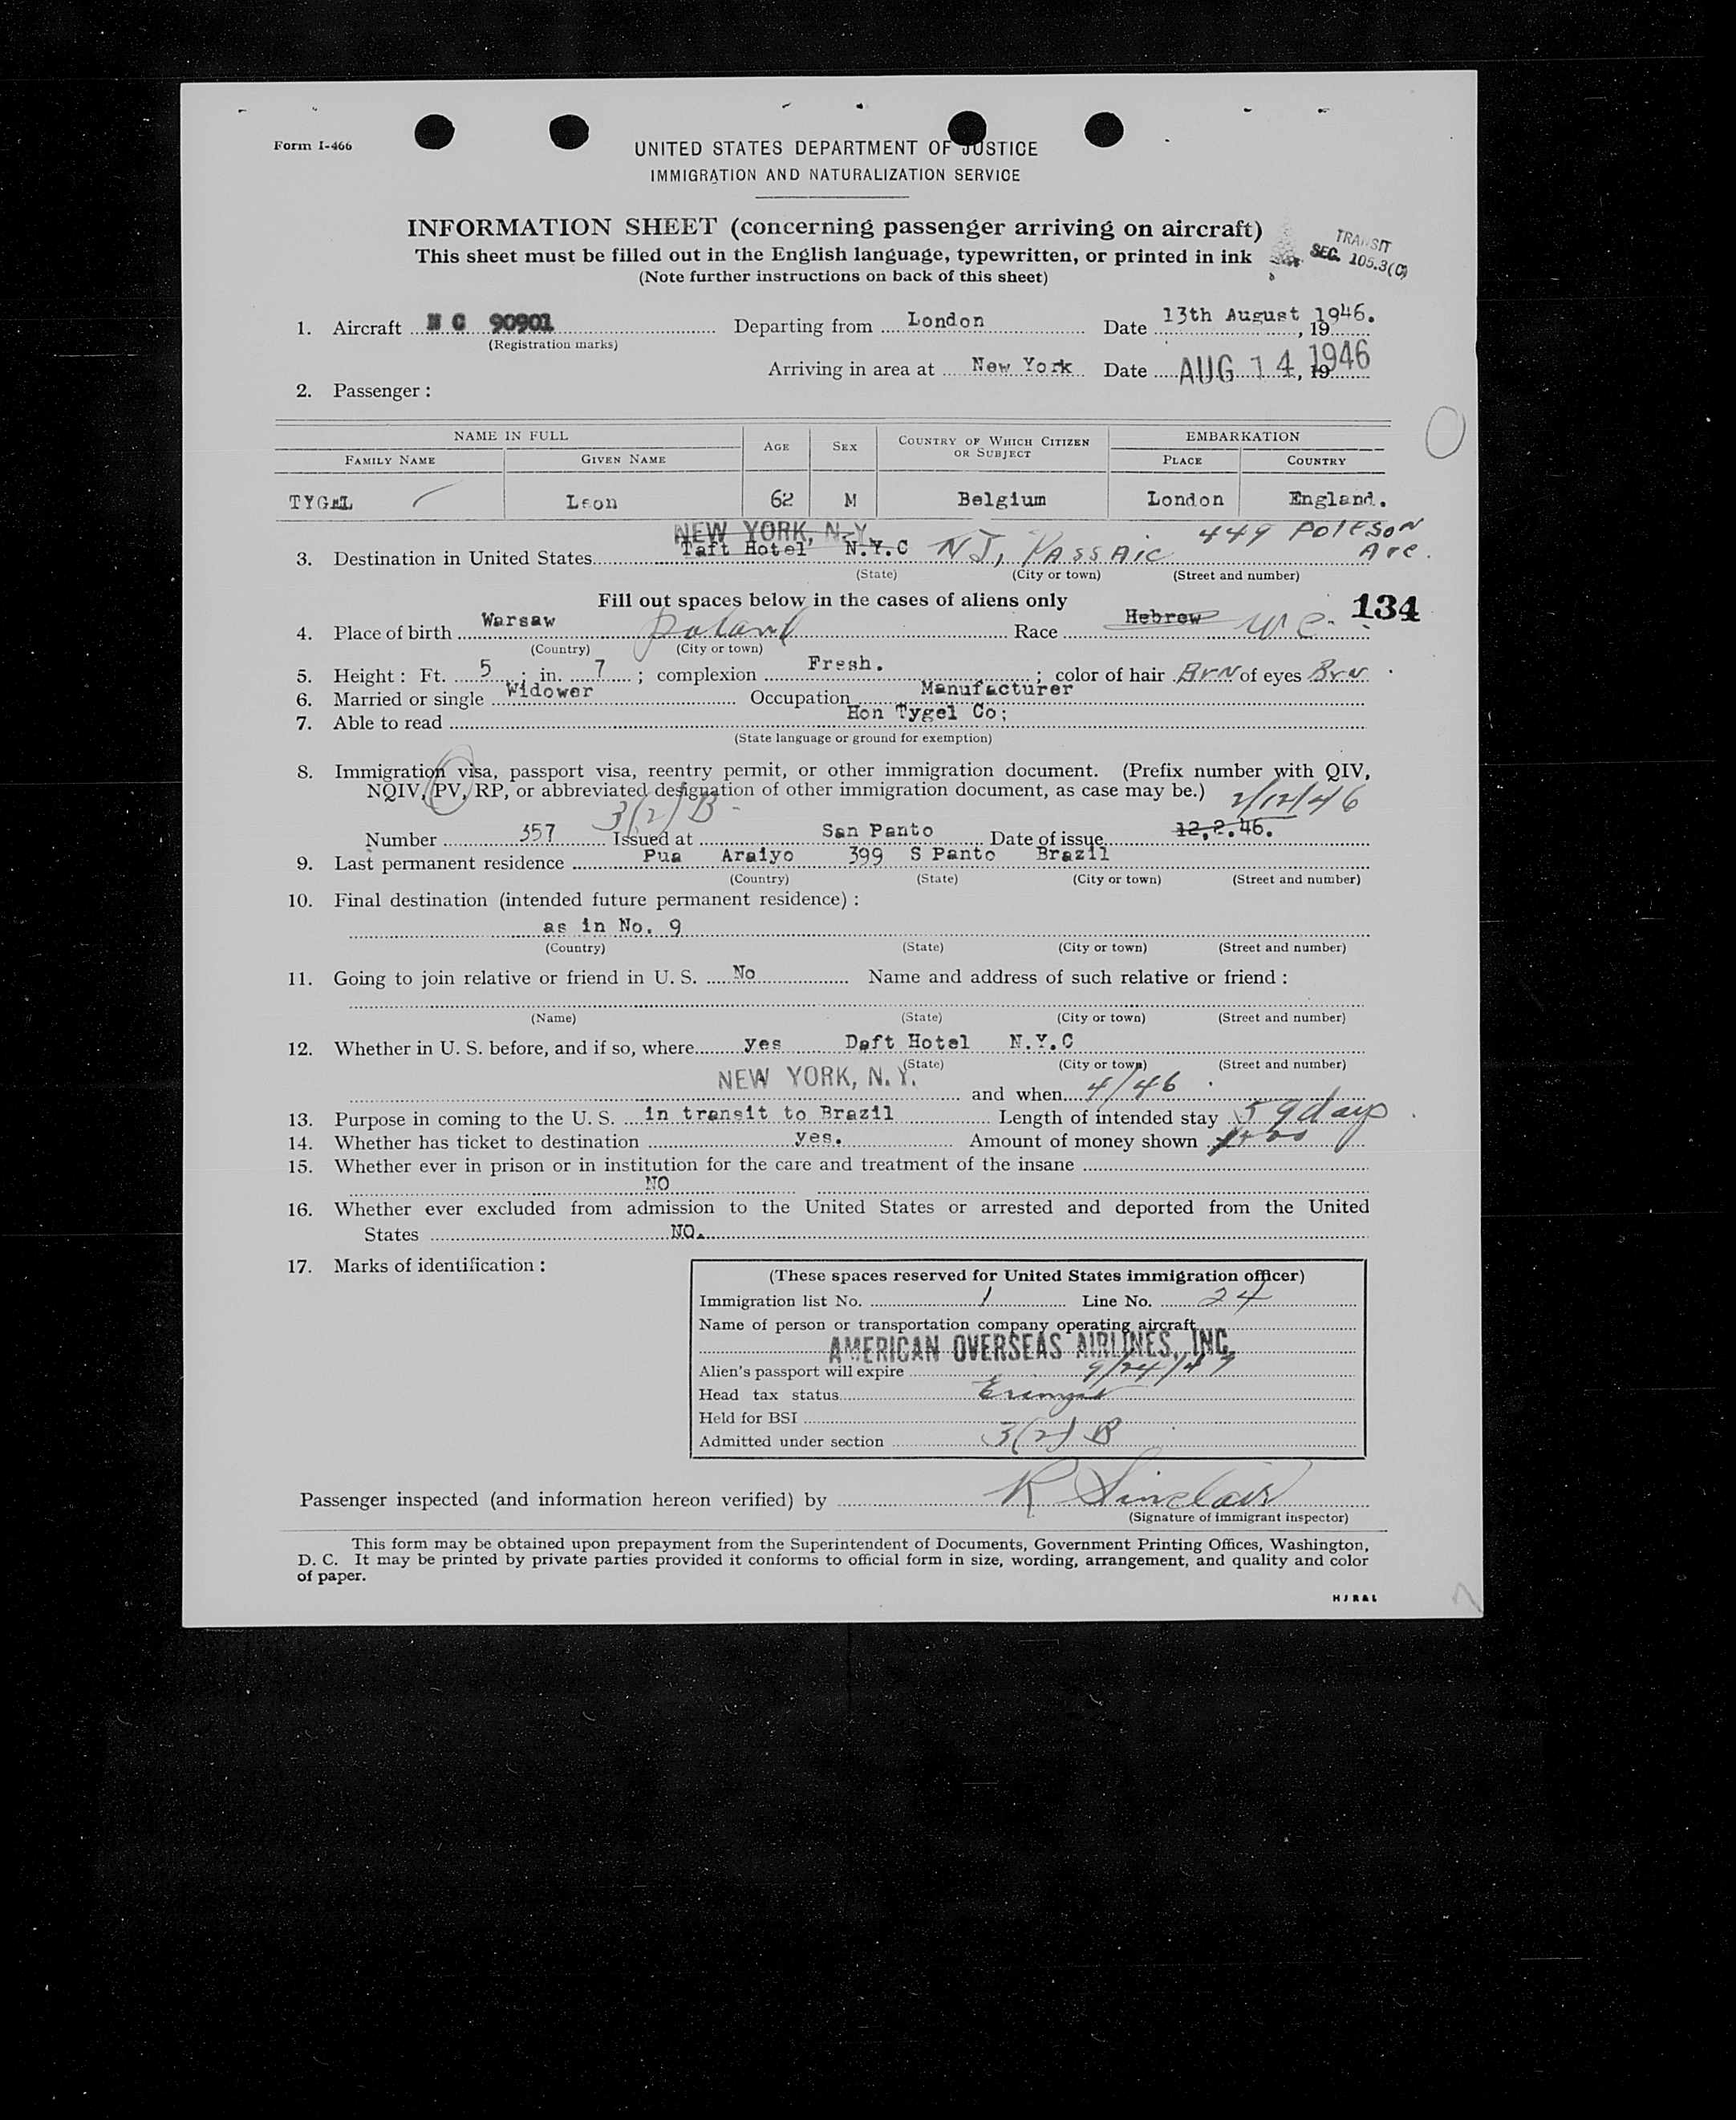 Form I-466
UNITED STATES DEPARTMENT OF JUSTICE
IMMIGRATION AND NATURALIZATION SERVICE
INFORMATION SHEET (concerning passenger arriving on aircraft)
This sheet must be filled out in the English language, typewritten, or printed in ink
(Note further instructions on back of this sheet)
TRANSIT
SEC. 105.3(C)
1. Aircraft N C 90901 Departing from London Date 13th August 1946. , 19
(Registration marks)
Arriving in area at New York Date AUG 14 1946 , 19
2. Passenger :
NAME IN FULL AGE SEX COUNTRY OF WHICH CITIZEN OR SUBJECT EMBARKATION
FAMILY NAME GIVEN NAME PLACE COUNTRY
TYGEL Leon 62 M Belgium London England.
NEW YORK, N.Y. 449 Poleson Ave.
3. Destination in United States Taft Hotel N.Y.C NJ, Passaic
(State) (City or town) (Street and number)
Fill out spaces below in the cases of aliens only
134
4. Place of birth Warsaw Poland Race Hebrew
(Country) (City or town)
5. Height : Ft. 5 ; in. 7 ; complexion Fresh. ; color of hair Brn of eyes Brn
6. Married or single Widower Occupation Manufacturer
7. Able to read Hon Tygel Co;
(State language or ground for exemption)
8. Immigration visa, passport visa, reentry permit, or other immigration document. (Prefix number with QIV,
NQIV, PV, RP, or abbreviated designation of other immigration document, as case may be.) 2/12/46
3(2) B
Number 357 Issued at San Panto Date of issue 12.2.46.
9. Last permanent residence Pua Araiyo 399 S Panto Brazil
(Country) (State) (City or town) (Street and number)
10. Final destination (intended future permanent residence) :
as in No. 9
(Country) (State) (City or town) (Street and number)
11. Going to join relative or friend in U. S. No Name and address of such relative or friend :
(Name) (State) (City or town) (Street and number)
12. Whether in U. S. before, and if so, where yes Daft Hotel N.Y.C
(State) (City or town) (Street and number)
NEW YORK, N.Y. and when 4/46
13. Purpose in coming to the U. S. in transit to Brazil Length of intended stay 59 days
14. Whether has ticket to destination yes. Amount of money shown
15. Whether ever in prison or in institution for the care and treatment of the insane
NO
16. Whether ever excluded from admission to the United States or arrested and deported from the United
States NO.
17. Marks of identification :
(These spaces reserved for United States immigration officer)
Immigration list No. 1 Line No. 24
Name of person or transportation company operating aircraft
AMERICAN OVERSEAS AIRLINES, INC.
Alien's passport will expire 9/24/47
Head tax status Exempt
Held for BSI
Admitted under section 3(2) B
Passenger inspected (and information hereon verified) by R Sinclair
(Signature of immigrant inspector)
This form may be obtained upon prepayment from the Superintendent of Documents, Government Printing Offices, Washington,
D. C. It may be printed by private parties provided it conforms to official form in size, wording, arrangement, and quality and color
of paper.
HJR&L